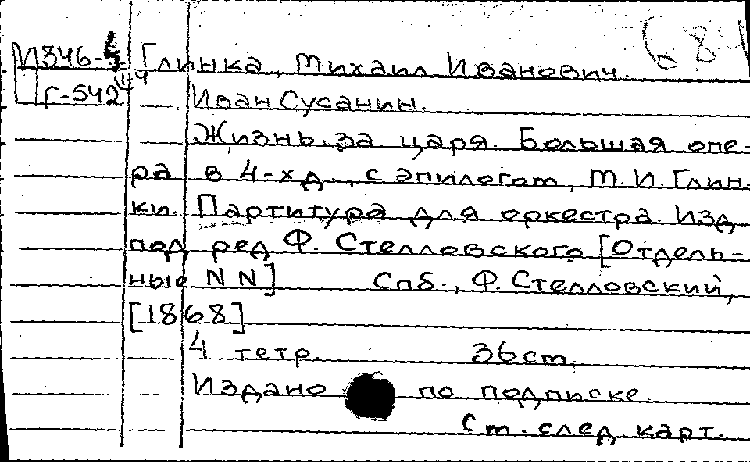 684
И346-5 Глинка, Михаил Иванович.
Г-542 Иван Сусанин.
Жизнь за царя. Большая опе-
ра в 4-х д., с эпилогом, М.И. Глин-
ки. Партитура для оркестра. Изд.
под ред Ф. Стелловского [Отдель-
ные NN] Спб., Ф. Стелловский,
[1868]
4 тетр. 36 cm.
Издано по подписке.
См. след. карт.